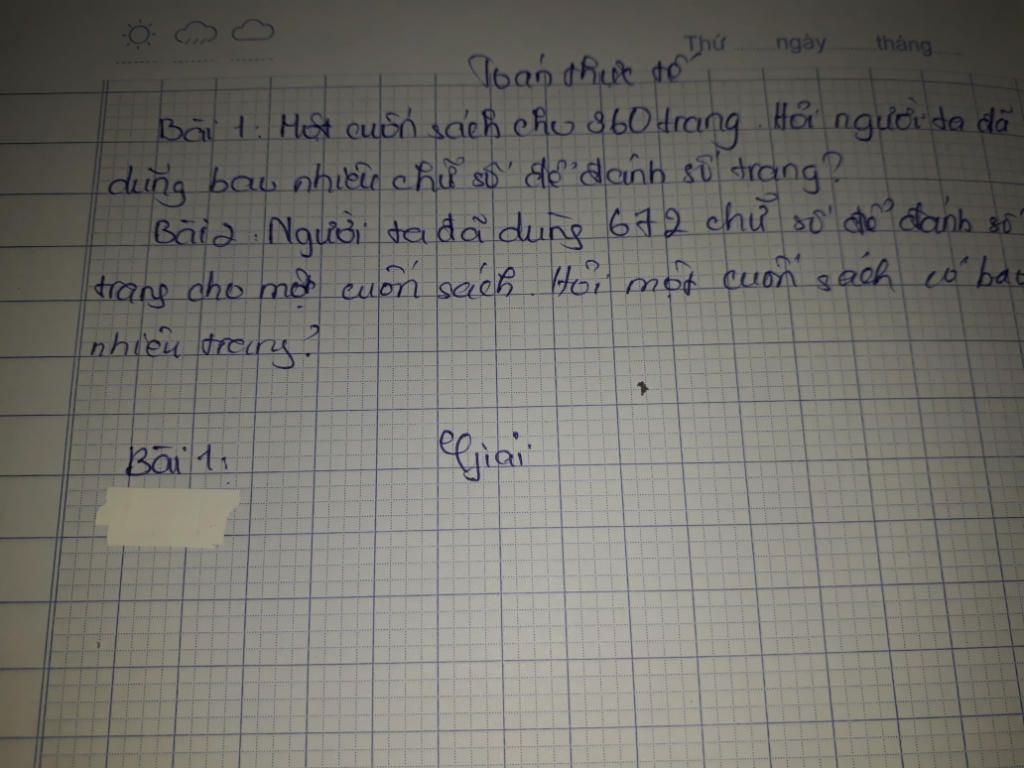 Thứ ngày tháng
Toán thực tế
Bài 1: Một cuốn sách cho 360 trang. Hỏi người ta đã
dùng bao nhiêu chữ số để đánh số trang?
Bài 2. Người ta đã dùng 672 chữ số để đánh số
trang cho một cuốn sách. Hỏi một cuốn sách có bao
nhiêu trang?
Bài 1: Giải